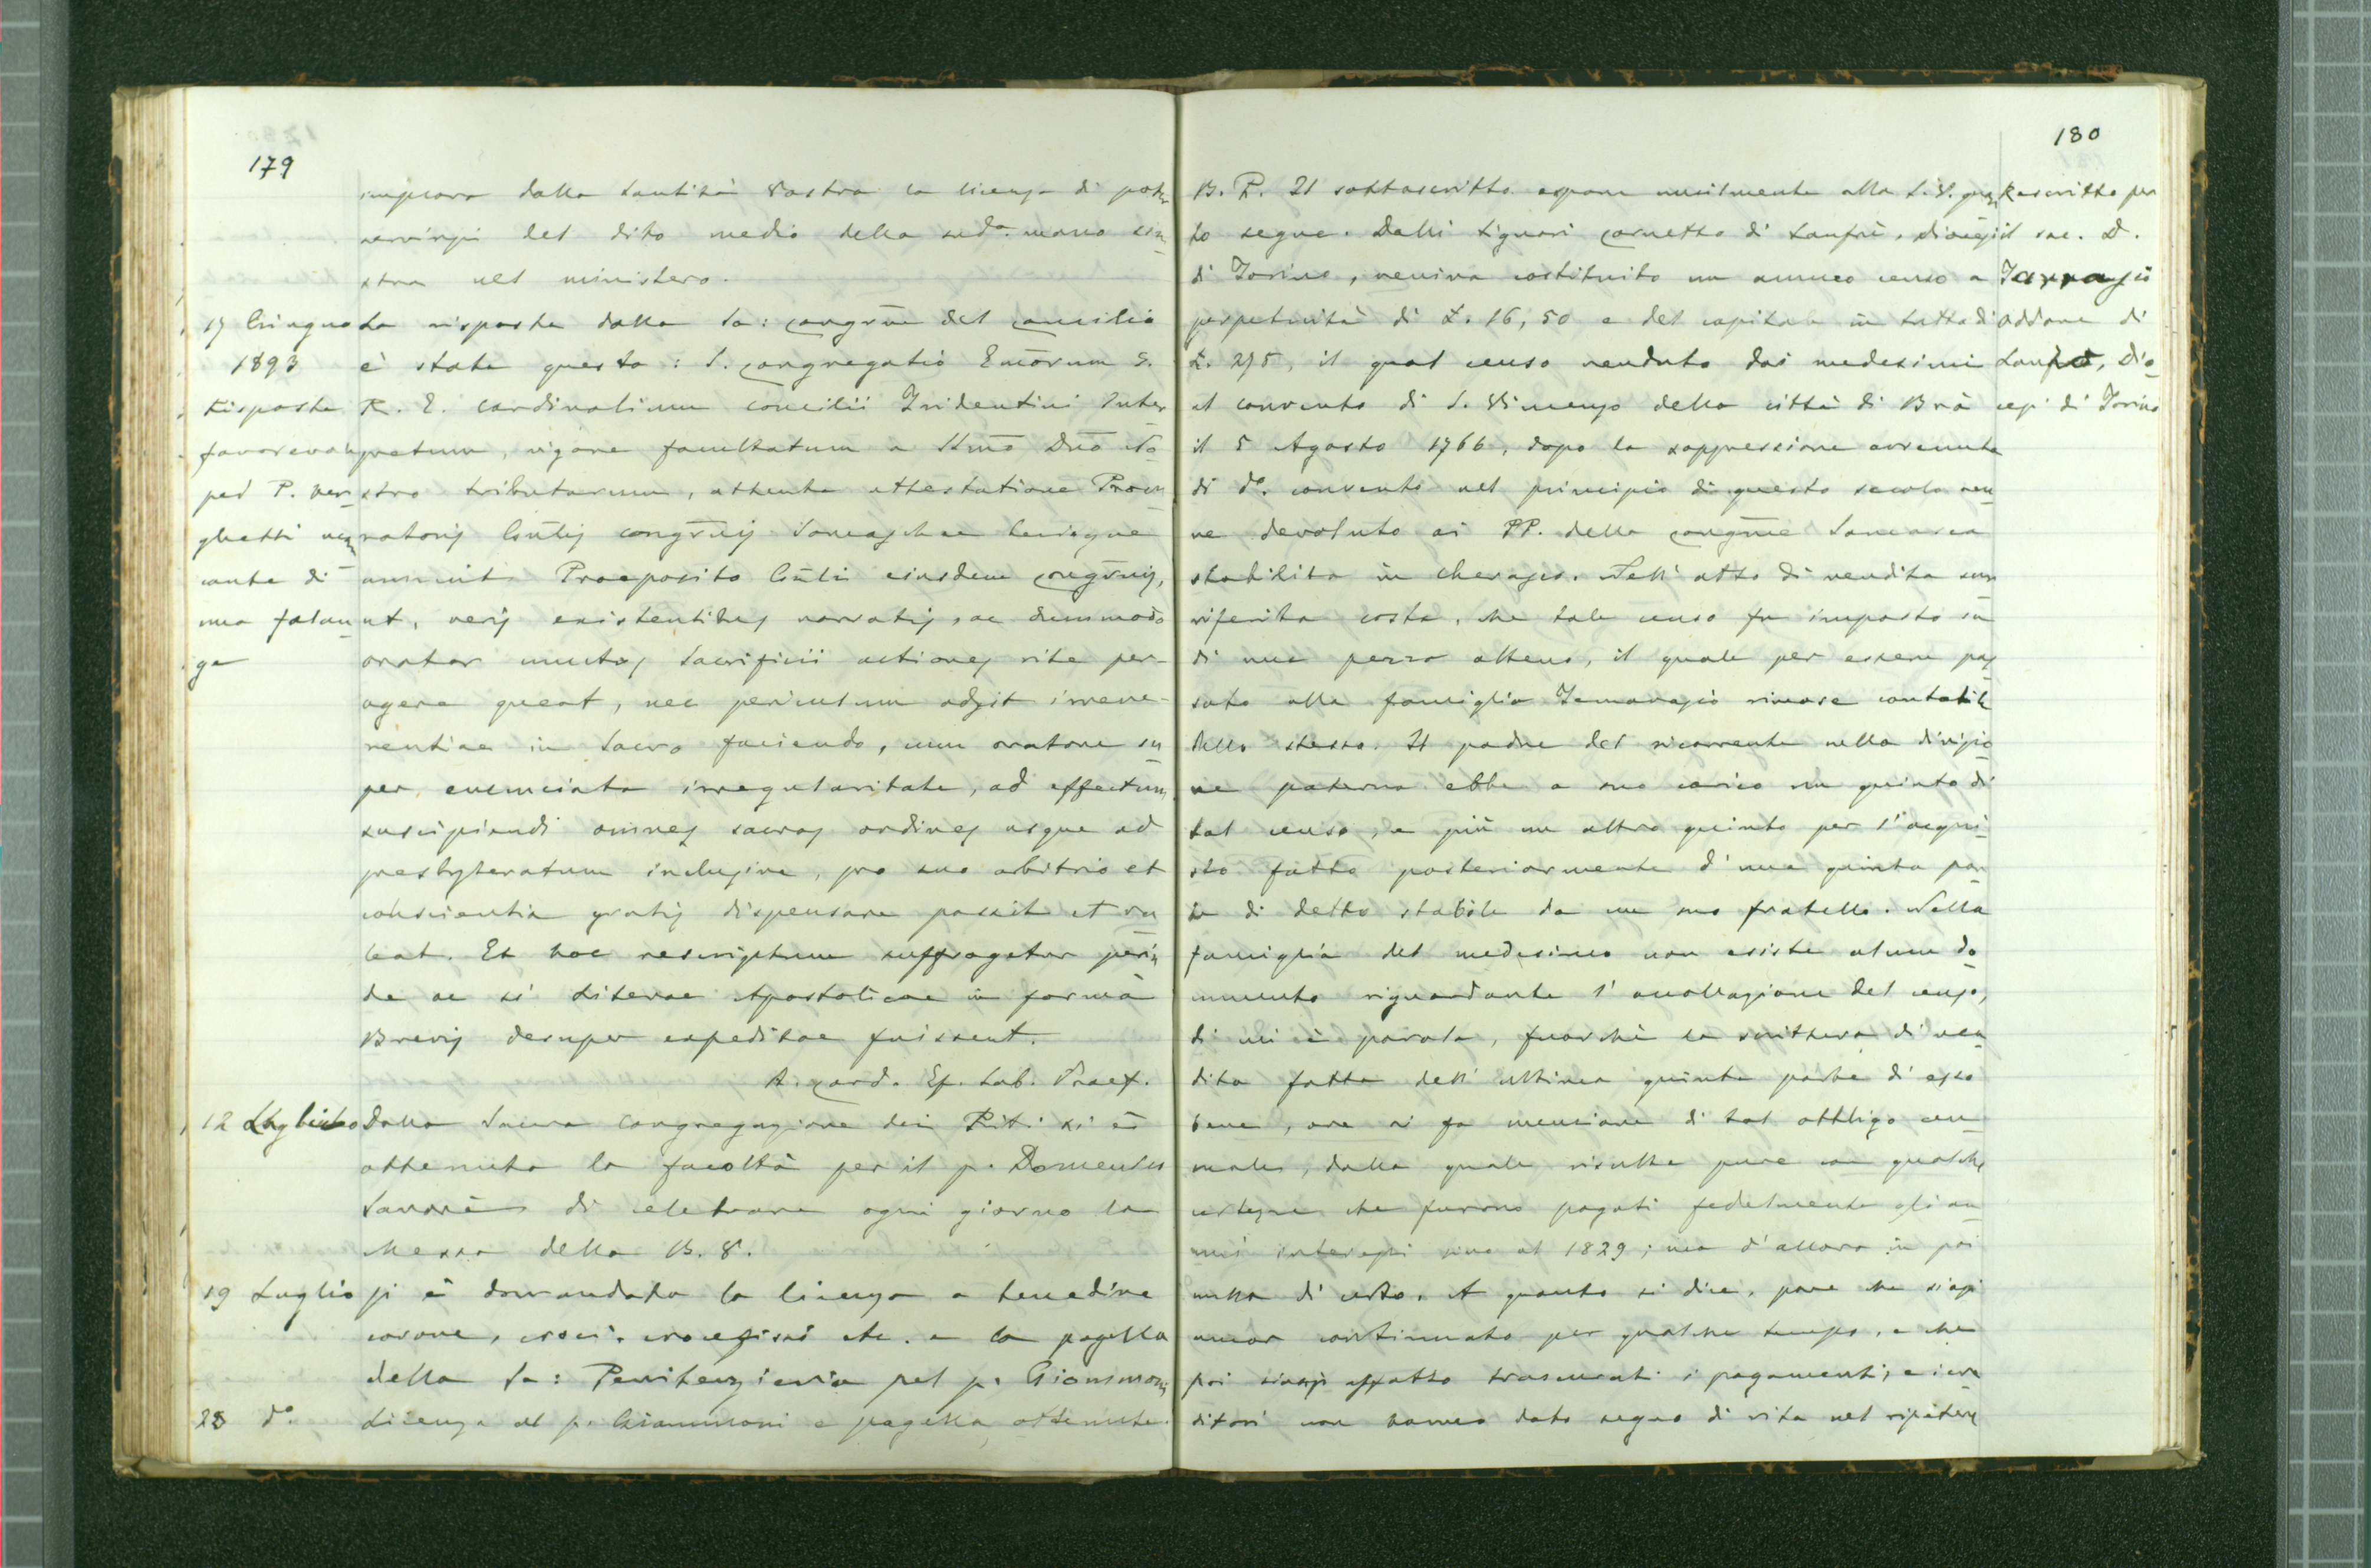 179
implora dalla Santità Vostra la licenza di poter
servirsi del dito medio della sudᵃ. mano sini
stra nel ministero.
17 Giugno
1893
Risposta
favorevole
pel P. Ver
ghetti man
cante di
una falan
ge
La risposta dalla Sa: Congrñe del Concilio
è stata questa: S. Congregatio Emōrum S.
R. E. Cardinalium Concilii Tridentini Inter
pretum, vigore facultatum a SSmō Dnō No
stro tributarum, attenta attestatione Procu
ratoris Gñlis Congrñis Somaschae benigne
annuit Praeposito Gñli eiusdem Congrñis,
ut, veris existentibus narratis, ac dummodo
orator cunctas Sacrificii actiones rite per-
agere queat, nec periculum adsit irreve-
rentiae in Sacro faciendo, cum oratore su
per enunciata irregularitate, ad effectum
suscipiendi omnes sacros ordines usque ad
presbyteratum inclusive, pro suo arbitrio et
conscientia gratis dispensare possit et va
leat. Et hoc rescriptum suffragatur perin
de ac si Literae Apostolicae in forma
Brevis desuper expeditae fuissent.
A. Card. Ep. Sab. Praef.
12 Luglio
Dalla Sacra Congregazione dei Riti si è
ottenuta la facoltà per il p. Domenico
Savarè di celebrare ogni giorno la
Messa della B. V.
19 Luglio
Si è domandata la licenza a benedire
corone, croci, crocefissi etc. e la pagella
della Sa: Penitenzieria pel p. Gianimoni
28 dᵒ.
Licenza al p. Gianimoni e pagella ottenute.
180
B. P. Il sottoscritto espone umilmente alla S. V. quan
to segue. Dalli Signori Cornetto di Sanfrè, diocesi
di Torino, veniva costituito un annuo censo a
perpetuità di L. 16,50 e del capitale in tutto di
L. 275, il qual censo venduto dai medesimi
al convento di S. Vincenzo della città di Brà
il 5 Agosto 1766, dopo la soppressione avvenuta
di dᵒ. convento nel principio di questo secolo ven
ne devoluto ai PP. della Congrñe Somasca
stabilita in Cherasco. Nell'atto di vendita sun
riferita costa, che tale censo fu imposto su
di una pezza alteno, il quale per essere pas
sato alla famiglia Tamavagio rimase contabile
dello stesso. Il padre del ricorrente nella divisio
ne paterna ebbe a suo carico un quinto di
tal censo, e più un altro quinto per l'acqui
sto fatto posteriormente d'una quinta par
te di detto stabile da un suo fratello. Nella
famiglia del medesimo non esiste alcun do
cumento riguardante l'accollazione del censo,
di cui è parola, fuorchè la scrittura di ven
dita fatta dell'ultima quinta parte di esso
bene, ove si fa menzione di tal obbligo an
nuale, dalla quale risulta pure con qualche
certezza che furono pagati fedelmente gli an
nui interessi sino al 1829; ma d'allora in poi
nulla di certo. A quanto si dice, pare che siasi
ancor continuato per qualche tempo, e che
poi siansi affatto trascurati i pagamenti; e i cre
ditori non hanno dato segno di vita nel ripetere
Rescritto per
il sac. D.
Tarragio
Oddone di
Sanfrè, Dio
cesi di Torino